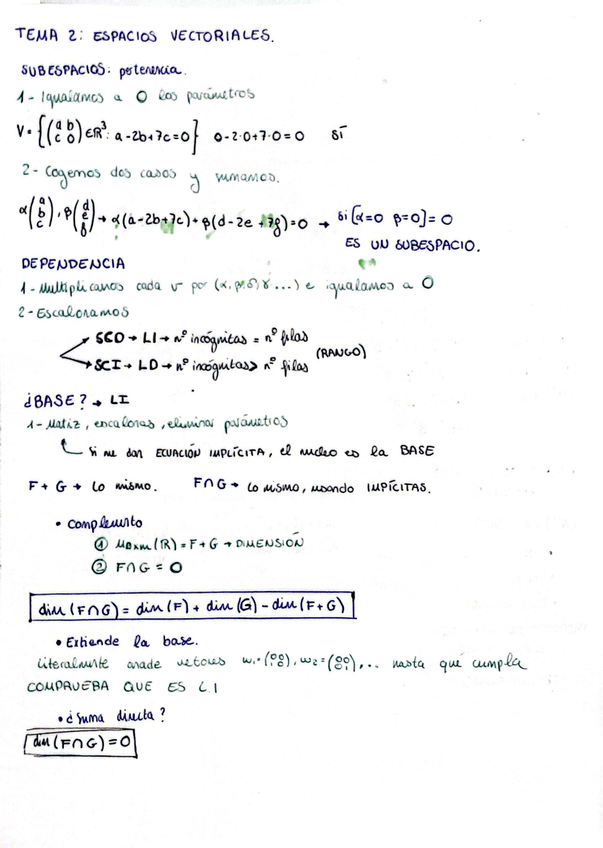 TEMA 2: ESPACIOS VECTORIALES.
SUBESPACIOS: pertenencia.
1- Igualamos a 0 los parámetros
V = {(a b c 0) ∈ R³: a-2b+7c=0} 0-2·0+7·0=0 SÍ
2- Cogemos dos casos y sumamos.
α(a b c), β(d e f) → α(a-2b+7c)+β(d-2e+7f)=0 → si [α=0 β=0]=0
ES UN SUBESPACIO.
DEPENDENCIA
1- Multiplicamos cada v por (α, β, δ, γ ...) e igualamos a 0
2- Escalonamos
SCD → LI → nº incógnitas = nº filas
(RANGO)
SCI → LD → nº incógnitas > nº filas
¿BASE? → LI
1- Matiz, escalonas, eliminar parámetros
Si me dan ECUACIÓN IMPLÍCITA, el nucleo es la BASE
F + G → Lo mismo. F∩G → Lo mismo, usando IMPÍCITAS.
• Complemto
① Mnxm (R) = F+G → DIMENSIÓN
② F∩G = 0
dim (F∩G) = dim (F) + dim (G) - dim (F+G)
• Extiende la base.
Literalmente añade vectores w1=(0 0 0 0), w2=(0 0 0 1), ... hasta que cumpla
COMPRUEBA QUE ES L.I
• ¿Suma directa?
dim (F∩G) = 0